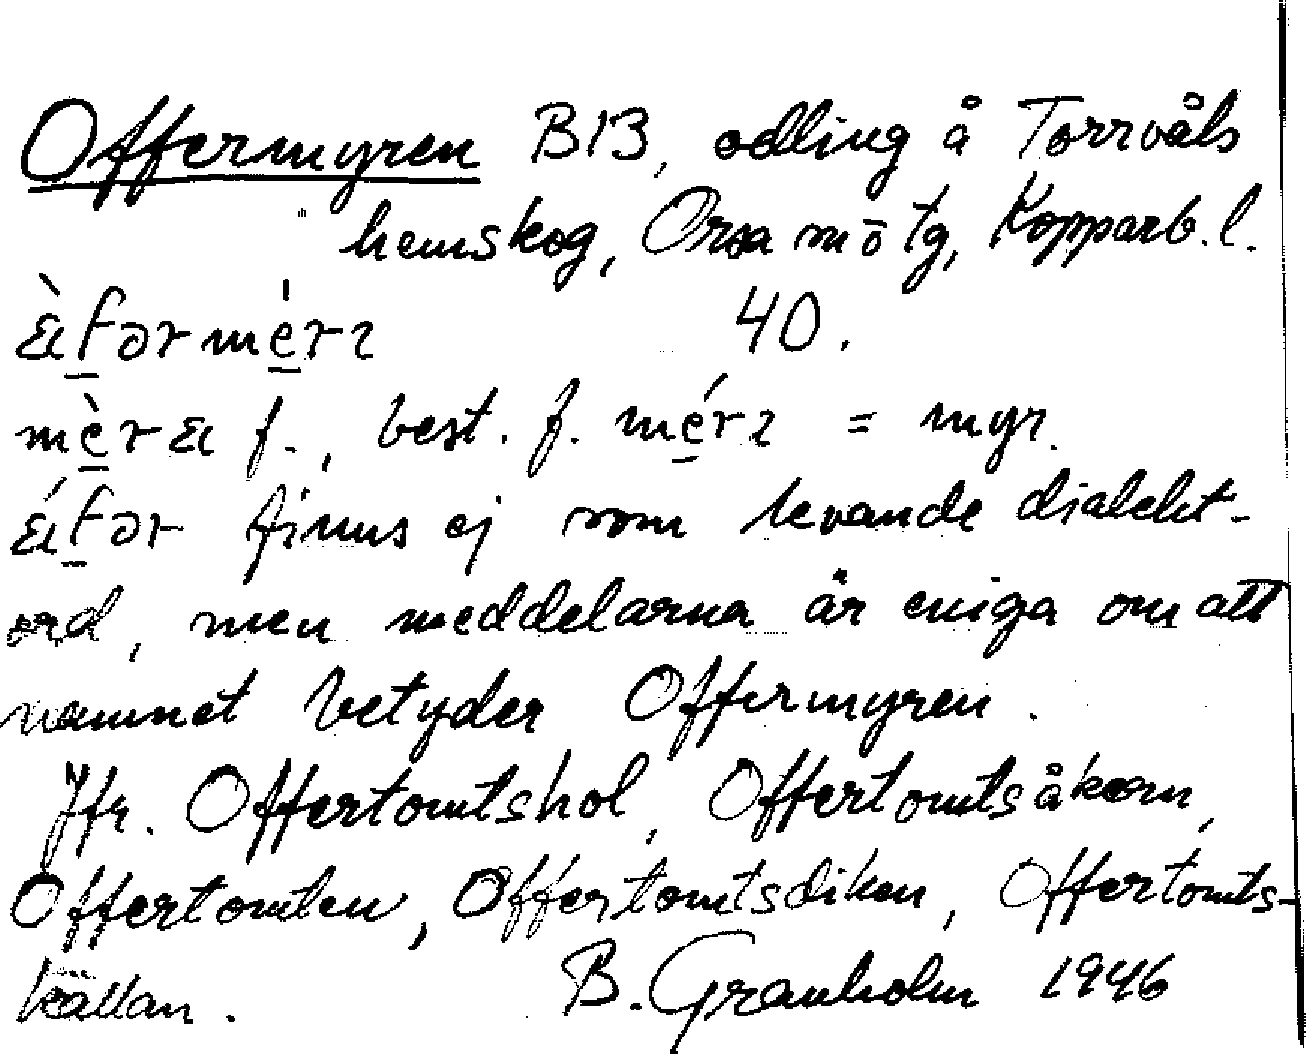 Offermyren B13, odling å Torrvåls
hemskog, Orsa m ö tg, Kopparb. l.
40.
f., best. f. = myr.
finns ej som levande dialekt-
ord, men meddelarna är eniga om att
namnet betyder Offermyren.
Jfr. Offertomtshol, Offertomtsåkern,
Offertomten, Offertomtsdiken, Offertomts-
källan. B. Granholm 1946